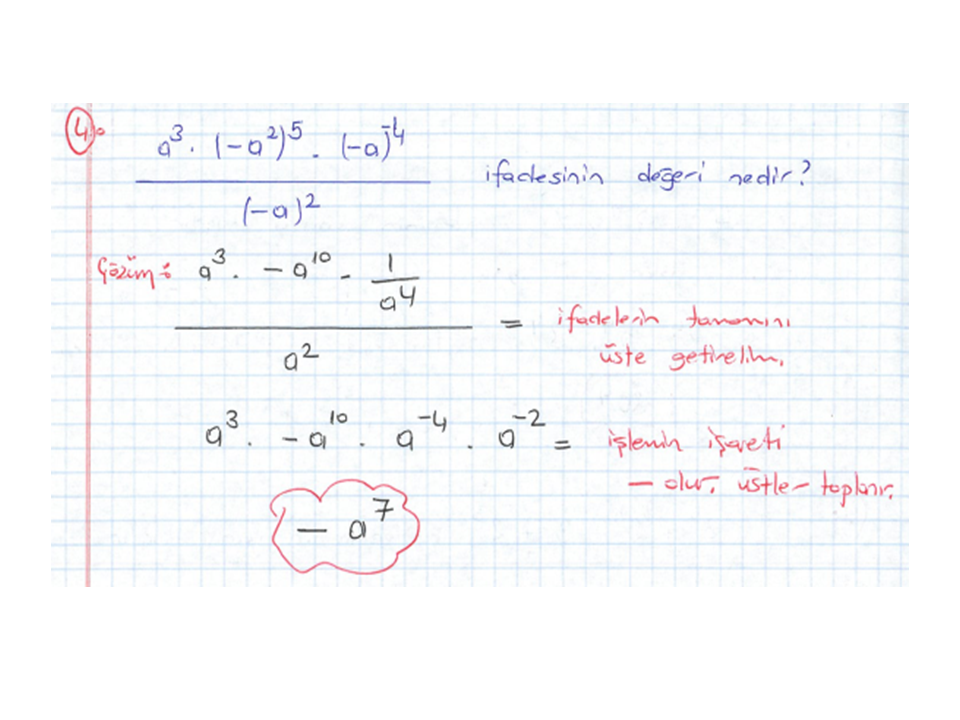 4) a³ . (-a²)⁵ . (-a)⁻⁴
(-a)²
ifadesinin değeri nedir?
Çözüm: a³ . -a¹⁰ . 1/a⁴
a²
= ifadelerin tamamını
üste getirelim.
a³ . -a¹⁰ . a⁻⁴ . a⁻² = işlemin işareti
- olur, üstler toplanır.
- a⁷